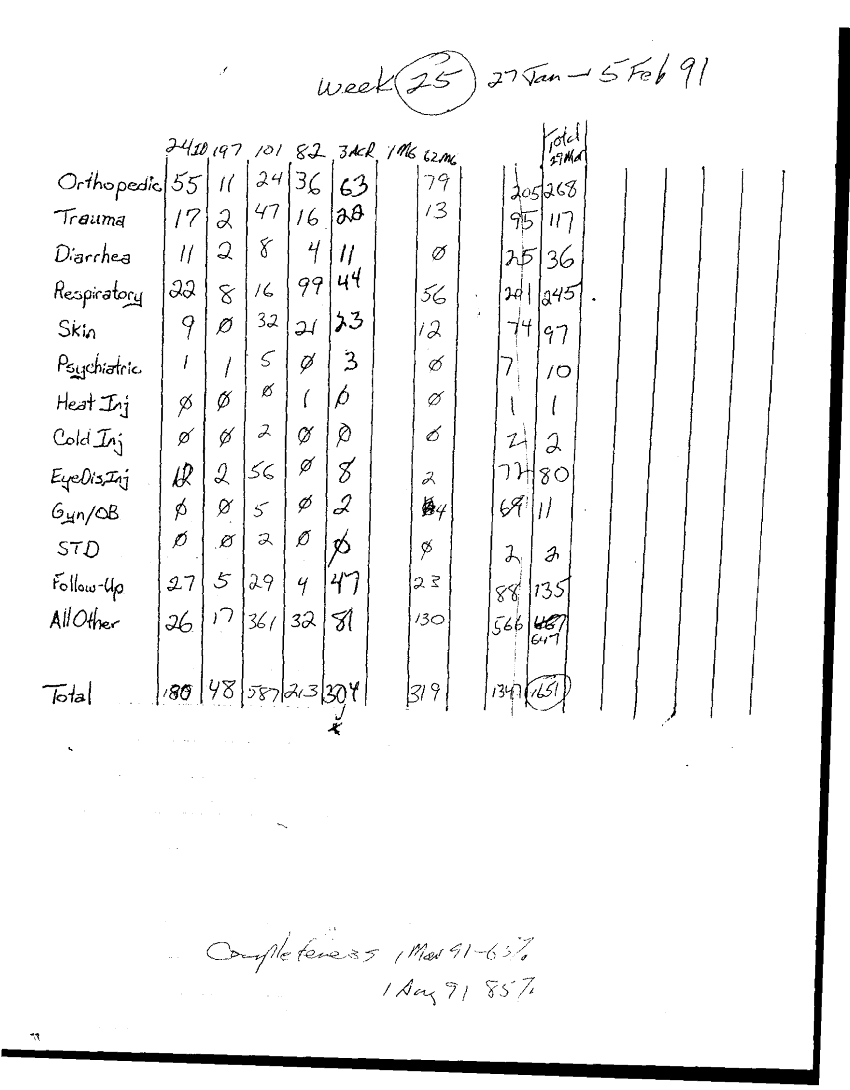 Week 25 27 Jan - 5 Feb 91
24ID 197 101 82 3ACR 1MG 62MG Total 29Mar
Orthopedic 55 11 24 36 63 79 205 268
Trauma 17 2 47 16 22 13 95 117
Diarrhea 11 2 8 4 11 Ø 25 36
Respiratory 22 8 16 99 44 56 201 245
Skin 9 Ø 32 21 23 12 74 97
Psychiatric 1 1 5 Ø 3 Ø 7 10
Heat Inj Ø Ø Ø 1 Ø Ø 1 1
Cold Inj Ø Ø 2 Ø Ø Ø 2 2
EyeDis,Inj 12 2 56 Ø 8 2 72 80
Gyn/OB Ø Ø 5 Ø 2 4 69 11
STD Ø Ø 2 Ø Ø Ø 2 2
Follow-Up 27 5 29 4 47 23 88 135
All Other 26 17 361 32 81 130 566
647
Total 180 48 587 213 304 319 1347 1651
Completeness 1 Mar 91-63%
1 Aug 91 85%